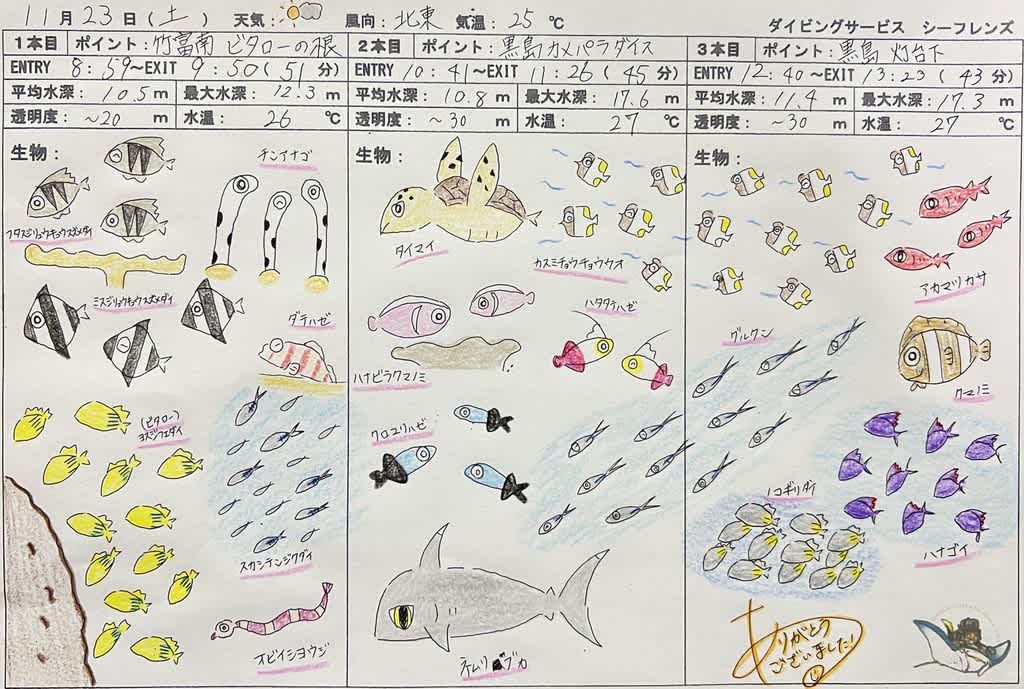 11月23日(土) 天気: 風向: 北東 気温: 25 ℃
ダイビングサービス シーフレンズ
1本目 ポイント: 竹富南 ビタローの根
ENTRY 8:59～EXIT 9:50(51分)
平均水深: 10.5 m 最大水深: 12.3 m
透明度: ～20 m 水温: 26 ℃
生物:
チンアナゴ
フタスジリュウキュウスズメダイ
ミスジリュウキュウスズメダイ
ダテハゼ
(ビタロー)
ヨスジフエダイ
スカシテンジクダイ
オビイシヨウジ
2本目 ポイント: 黒島カメパラダイス
ENTRY 10:41～EXIT 11:26(45分)
平均水深: 10.8 m 最大水深: 17.6 m
透明度: ～30 m 水温: 27 ℃
生物:
タイマイ
カスミチョウチョウウオ
ハタタテハゼ
ハナビラクマノミ
クロユリハゼ
ネムリブカ
3本目 ポイント: 黒島 灯台下
ENTRY 12:40～EXIT 13:23(43分)
平均水深: 11.4 m 最大水深: 17.3 m
透明度: ～30 m 水温: 27 ℃
生物:
アカマツカサ
グルクン
クマノミ
ノコギリダイ
ハナゴイ
ありがとう
ございました!